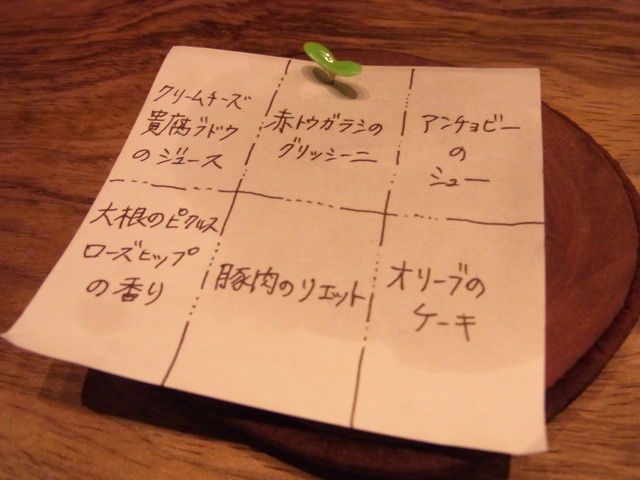 クリームチーズ
貴腐ブドウ
のジュース
赤トウガラシの
グリッシーニ
アンチョビー
の
シュー
大根のピクルス
ローズヒップ
の香り
豚肉のリエット
オリーブの
ケーキ